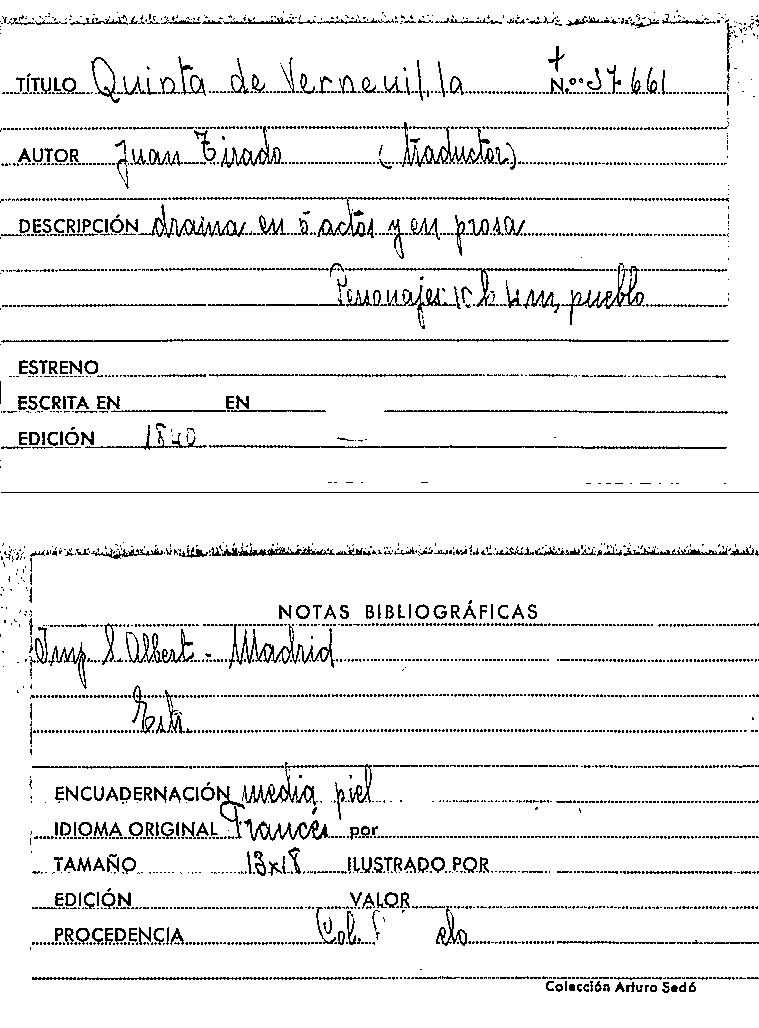 TÍTULO Quinta de Verneuil, la N.º 37.661
AUTOR Juan Tirado (traductor)
DESCRIPCIÓN drama en 5 actos y en prosa
Personajes: h 4 m, pueblo
ESTRENO
ESCRITA EN EN
EDICIÓN 1840
NOTAS BIBLIOGRÁFICAS
Imp S. Albert - Madrid
ENCUADERNACIÓN media piel
IDIOMA ORIGINAL Francés por
TAMAÑO 13x18 ILUSTRADO POR
EDICIÓN VALOR
PROCEDENCIA Col.
Colección Arturo Sedó